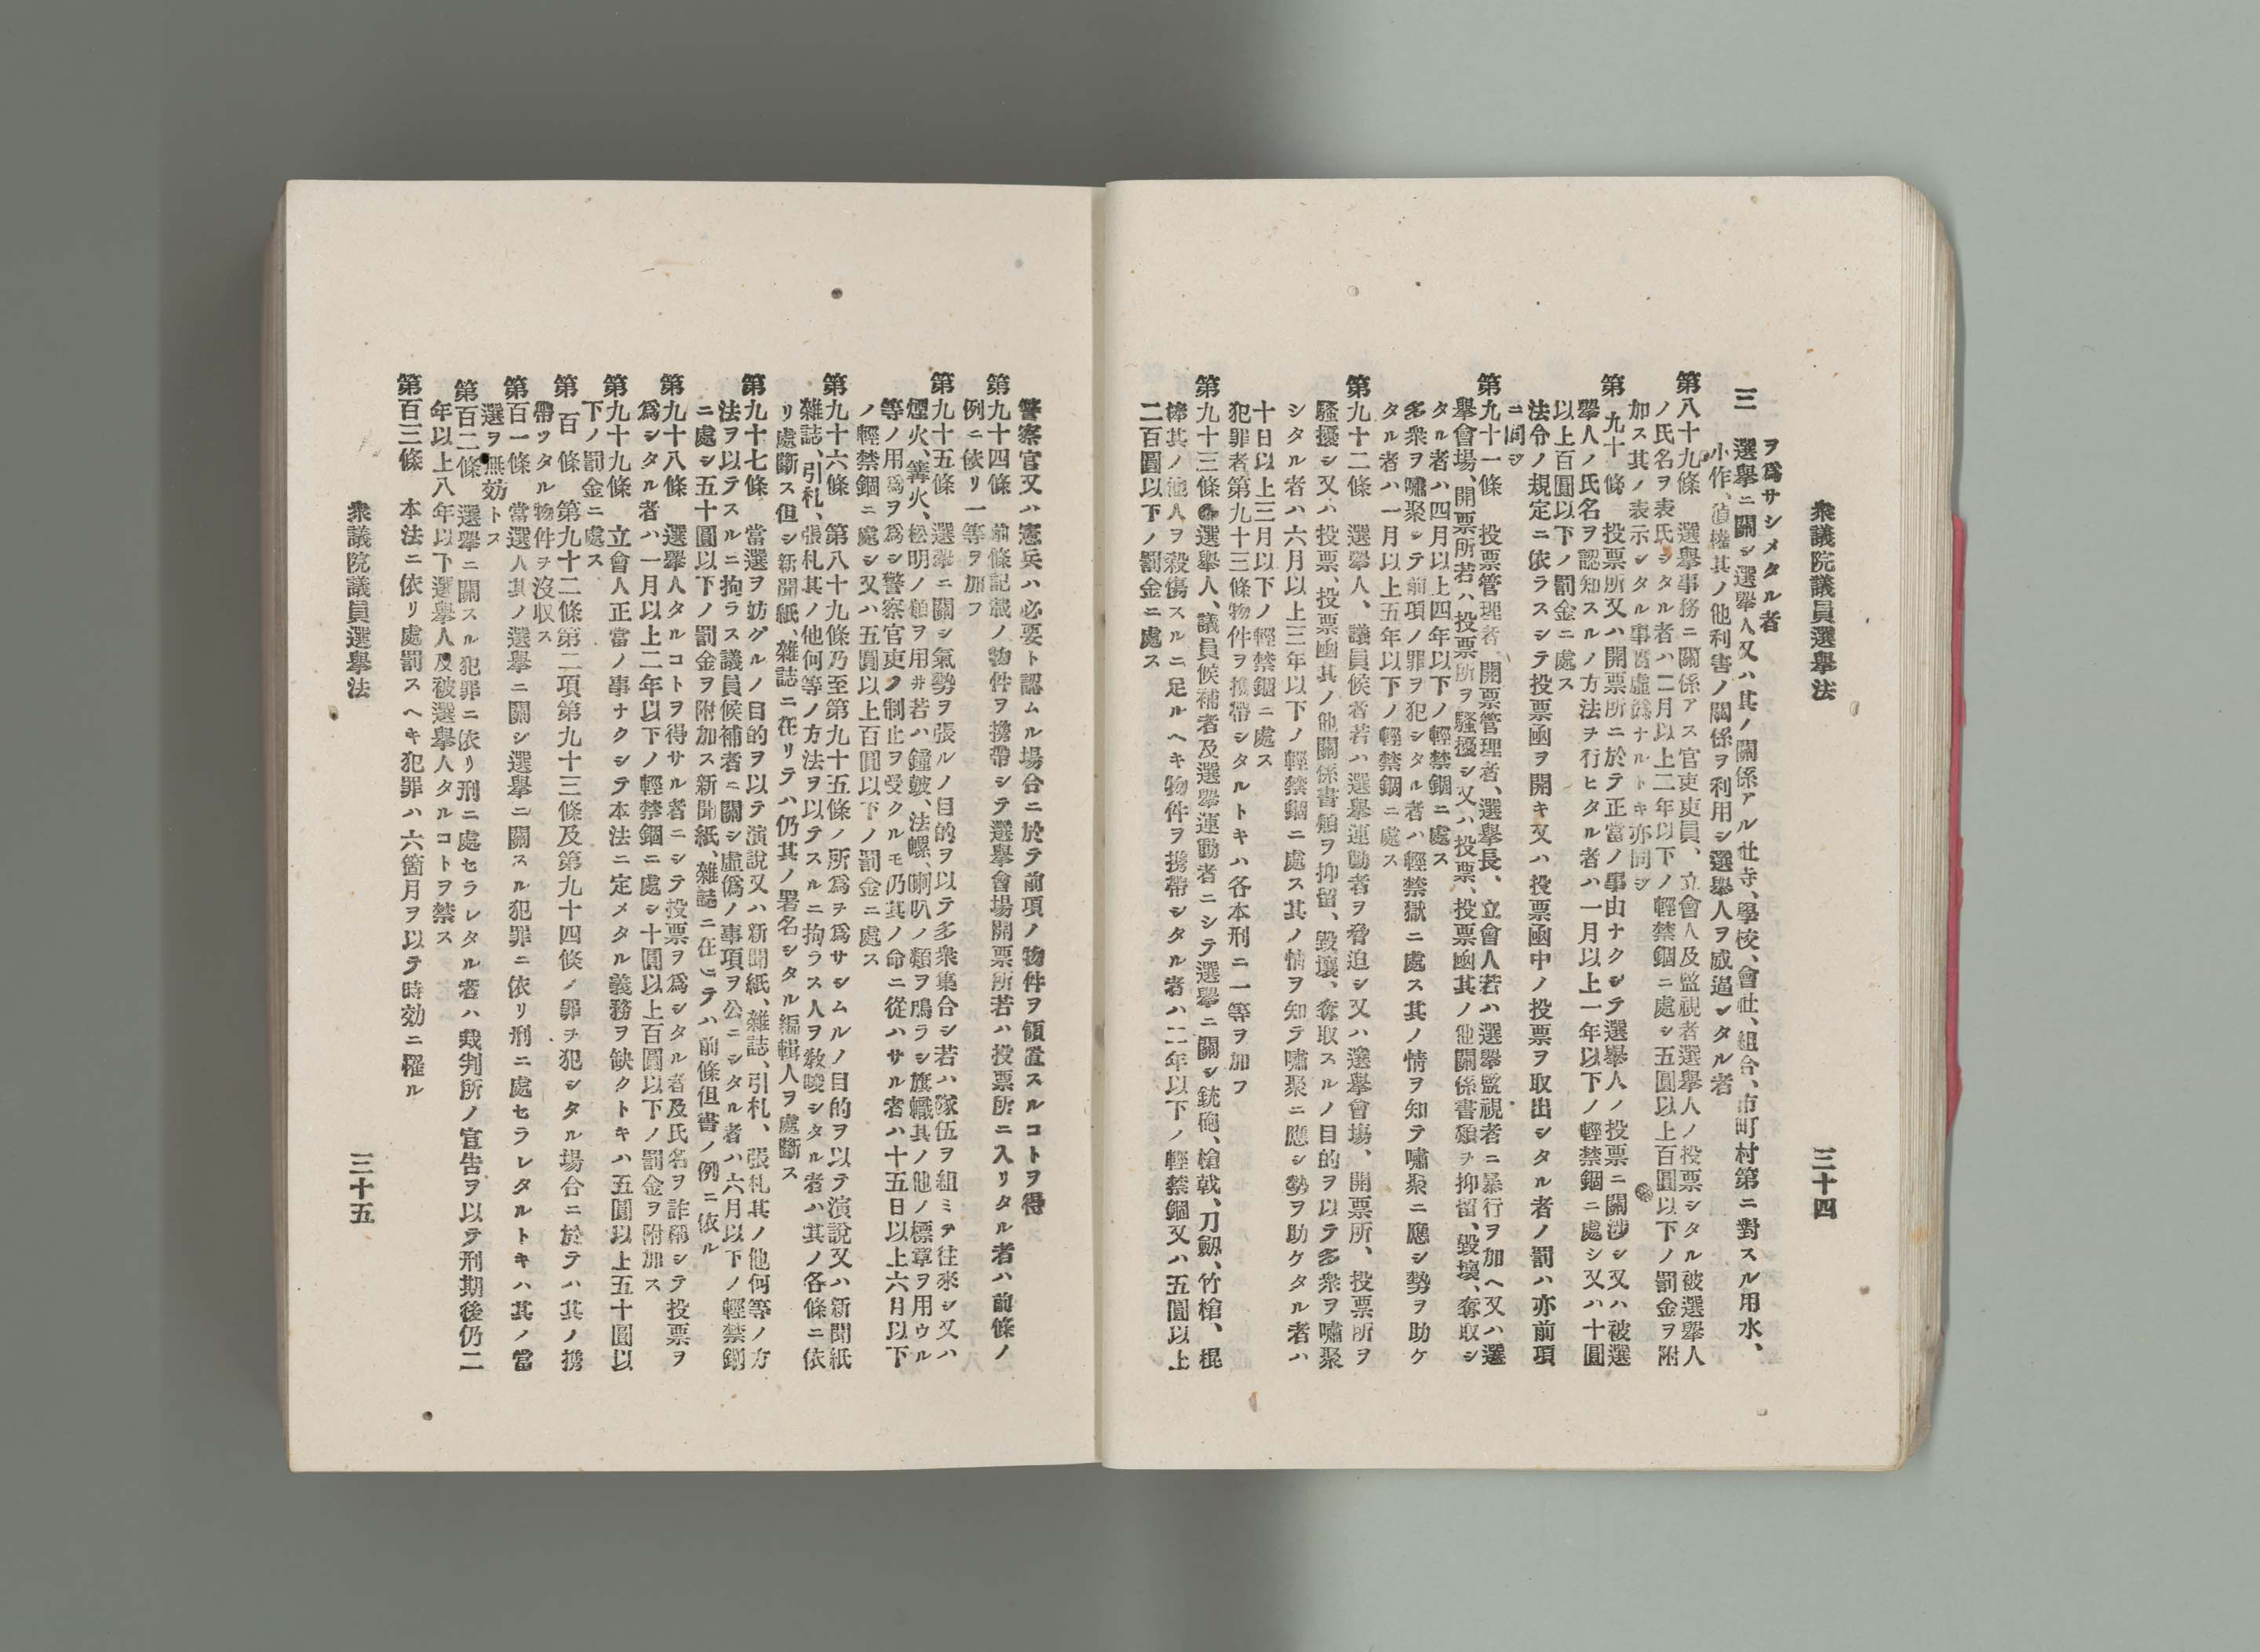 衆議院議員選擧法
三十四
ヲ爲サシメタル者
三 選擧ニ關シ選擧人又ハ其ノ關係アル社寺、學校、會社、組合、市町村第ニ對スル用水、
小作、債權其ノ他利害ノ關係ヲ利用シ選擧人ヲ威逼シタル者
第八十九條 選擧事務ニ關係アス官吏吏員、立會人及監視者選擧人ノ投票シタル被選擧人
ノ氏名ヲ表氏シタル者ハ二月以上二年以下ノ輕禁錮ニ處シ五圓以上百圓以下ノ罰金ヲ附
加ス其ノ表示シタル事實虛僞ナルトキ亦同シ
第九十條 投票所又ハ開票所ニ於テ正當ノ事由ナクシテ選擧人ノ投票ニ關涉シ又ハ被選
擧人ノ氏名ヲ認知スルノ方法ヲ行ヒタル者ハ一月以上一年以下ノ輕禁錮ニ處シ又ハ十圓
以上百圓以下ノ罰金ニ處ス
法令ノ規定ニ依ラスシテ投票函ヲ開キ又ハ投票函中ノ投票ヲ取出シタル者ノ罰ハ亦前項
ニ同シ
第九十一條 投票管理者、開票管理者、選擧長、立會人若ハ選擧監視者ニ暴行ヲ加ヘ又ハ選
擧會場、開票所若ハ投票所ヲ騷擾シ又ハ投票、投票函其ノ他關係書類ヲ抑留、毀壞、奪取シ
タル者ハ四月以上四年以下ノ輕禁錮ニ處ス
多衆ヲ嘯聚シテ前項ノ罪ヲ犯シタル者ハ輕禁獄ニ處ス其ノ情ヲ知テ嘯聚ニ應シ勢ヲ助ケ
タル者ハ一月以上五年以下ノ輕禁錮ニ處ス
第九十二條 選擧人、議員候者若ハ選擧運動者ヲ脅迫シ又ハ選擧會場、開票所、投票所ヲ
騷擾シ又ハ投票、投票函其ノ他關係書類ヲ抑留、毀壞、奪取スルノ目的ヲ以テ多衆ヲ嘯聚
シタル者ハ六月以上三年以下ノ輕禁錮ニ處ス其ノ情ヲ知テ嘯聚ニ應シ勢ヲ助ケタル者ハ
十日以上三月以下ノ輕禁錮ニ處ス
犯罪者第九十三條物件ヲ携帶シタルトキハ各本刑ニ一等ヲ加フ
第九十三條 選擧人、議員候補者及選擧運動者ニシテ選擧ニ關シ銃砲、槍戟、刀劔、竹槍、棍
棒其ノ他人ヲ殺傷スルニ足ルヘキ物件ヲ携帶シタル者ハ二年以下ノ輕禁錮又ハ五圓以上
二百圓以下ノ罰金ニ處ス
警察官又ハ憲兵ハ必要ト認ムル場合ニ於テ前項ノ物件ヲ領置スルコトヲ得
第九十四條 前條記載ノ物件ヲ携帶シテ選擧會場開票所若ハ投票所ニ入リタル者ハ前條ノ
例ニ依リ一等ヲ加フ
第九十五條 選擧ニ關シ氣勢ヲ張ルノ目的ヲ以テ多衆集合シ若ハ隊伍ヲ組ミテ往來シ又ハ
煙火、篝火、松明ノ類ヲ用井若ハ鐘皷、法螺、喇叭ノ類ヲ鳴ラシ旗幟其ノ他ノ標章ヲ用ウル
等ノ用爲ヲ爲シ警察官吏ノ制止ヲ受クルモ仍其ノ命ニ從ハサル者ハ十五日以上六月以下
ノ輕禁錮ニ處シ又ハ五圓以上百圓以下ノ罰金ニ處ス
第九十六條 第八十九條乃至第九十五條ノ所爲ヲ爲サシムルノ目的ヲ以テ演說又ハ新聞紙
雜誌、引札、張札其ノ他何等ノ方法ヲ以テスルニ拘ラス人ヲ敎唆シタル者ハ其ノ各條ニ依
リ處斷ス但シ新聞紙、雜誌ニ在リテハ仍其ノ署名シタル編輯人ヲ處斷ス
第九十七條 當選ヲ妨グルノ目的ヲ以テ演說又ハ新聞紙、雜誌、引札、張札其ノ他何等ノ方
法ヲ以テスルニ拘ラス議員候補者ニ關シ虛僞ノ事項ヲ公ニシタル者ハ六月以下ノ輕禁錮
ニ處シ五十圓以下ノ罰金ヲ附加ス新聞紙、雜誌ニ在リテハ前條但書ノ例ニ依ル
第九十八條 選擧人タルコトヲ得サル者ニシテ投票ヲ爲シタル者及氏名ヲ詐稱シテ投票ヲ
爲シタル者ハ一月以上二年以下ノ輕禁錮ニ處シ十圓以上百圓以下ノ罰金ヲ附加ス
第九十九條 立會人正當ノ事ナクシテ本法ニ定メタル義務ヲ缺クトキハ五圓以上五十圓以
下ノ罰金ニ處ス
第百條 第九十二條第二項第九十三條及第九十四條ノ罪ヲ犯シタル場合ニ於テハ其ノ携
帶ツタル物件ヲ沒収ス
第百一條 當選人其ノ選擧ニ關シ選擧ニ關スル犯罪ニ依リ刑ニ處セラレタルトキハ其ノ當
選ヲ無効トス
第百二條 選擧ニ關スル犯罪ニ依リ刑ニ處セラレタル者ハ裁判所ノ宣告ヲ以テ刑期後仍二
年以上八年以下選擧人及被選擧人タルコトヲ禁ス
第百三條 本法ニ依リ處罰スヘキ犯罪ハ六箇月ヲ以テ時効ニ罹ル
衆議院議員選擧法
三十五